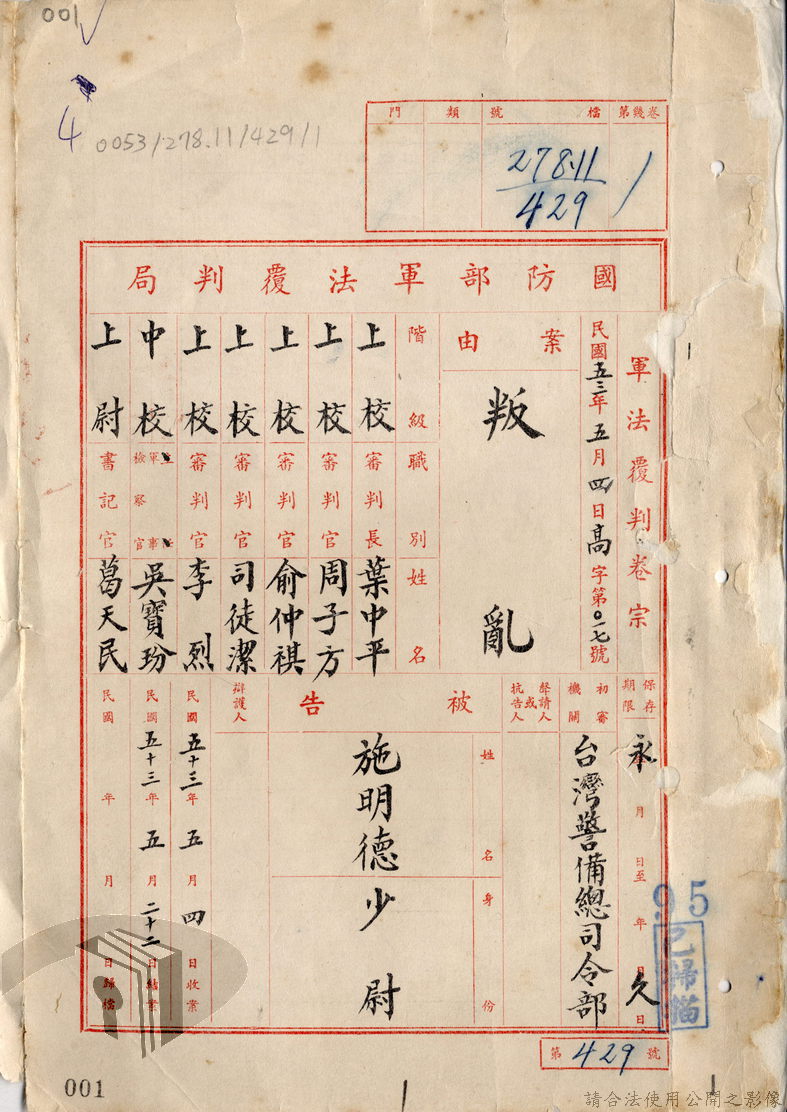 001
4
0053/278.11/429/1
卷幾第
檔號
類
門
278.11
429
1
國防部軍法覆判局
軍法覆判卷宗
民國五三年五月四日高字第〇一七號
案由
叛亂
階級
職別
姓名
上校
審判長
葉中平
上校
審判官
周子方
上校
審判官
俞仲祺
上校
審判官
司徒潔
上校
審判官
李烈
中校
軍事檢察官
吳寶玢
上尉
書記官
葛天民
保存期限
永久
年月日至年月日
初審機關
台灣警備總司令部
聲請人或抗告人
被告
姓名
施明德
身份
少尉
辯護人
民國五十三年五月四日收案
民國五十三年五月二十二日結案
民國年月日歸檔
95
已掃描
第429號
001
請合法使用公開之影像